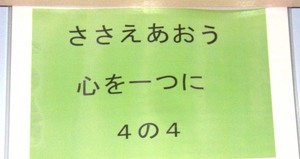 ささえあおう
心を一つに
４の４